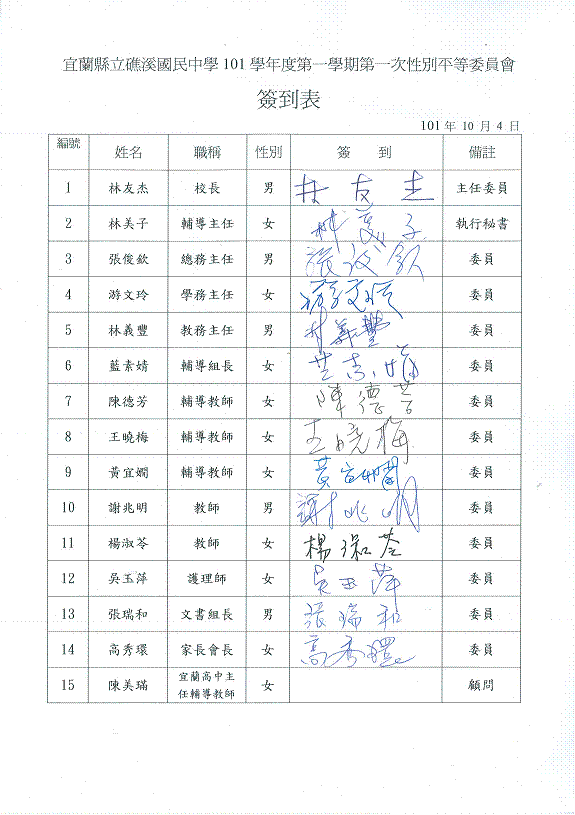 宜蘭縣立礁溪國民中學 101 學年度第一學期第一次性別平等委員會
簽到表
101 年 10 月 4 日
編號 姓名 職稱 性別 簽 到 備註
1 林友杰 校長 男 林友杰 主任委員
2 林美子 輔導主任 女 林美子 執行秘書
3 張俊欽 總務主任 男 張俊欽 委員
4 游文玲 學務主任 女 游文玲 委員
5 林義豐 教務主任 男 林義豐 委員
6 藍素婧 輔導組長 女 藍素婧 委員
7 陳德芳 輔導教師 女 陳德芳 委員
8 王曉梅 輔導教師 女 王曉梅 委員
9 黃宜嫺 輔導教師 女 黃宜嫺 委員
10 謝兆明 教師 男 謝兆明 委員
11 楊淑苓 教師 女 楊淑苓 委員
12 吳玉萍 護理師 女 吳玉萍 委員
13 張瑞和 文書組長 男 張瑞和 委員
14 高秀環 家長會長 女 高秀環 委員
15 陳美瑀 宜蘭高中主任輔導教師 女 顧問